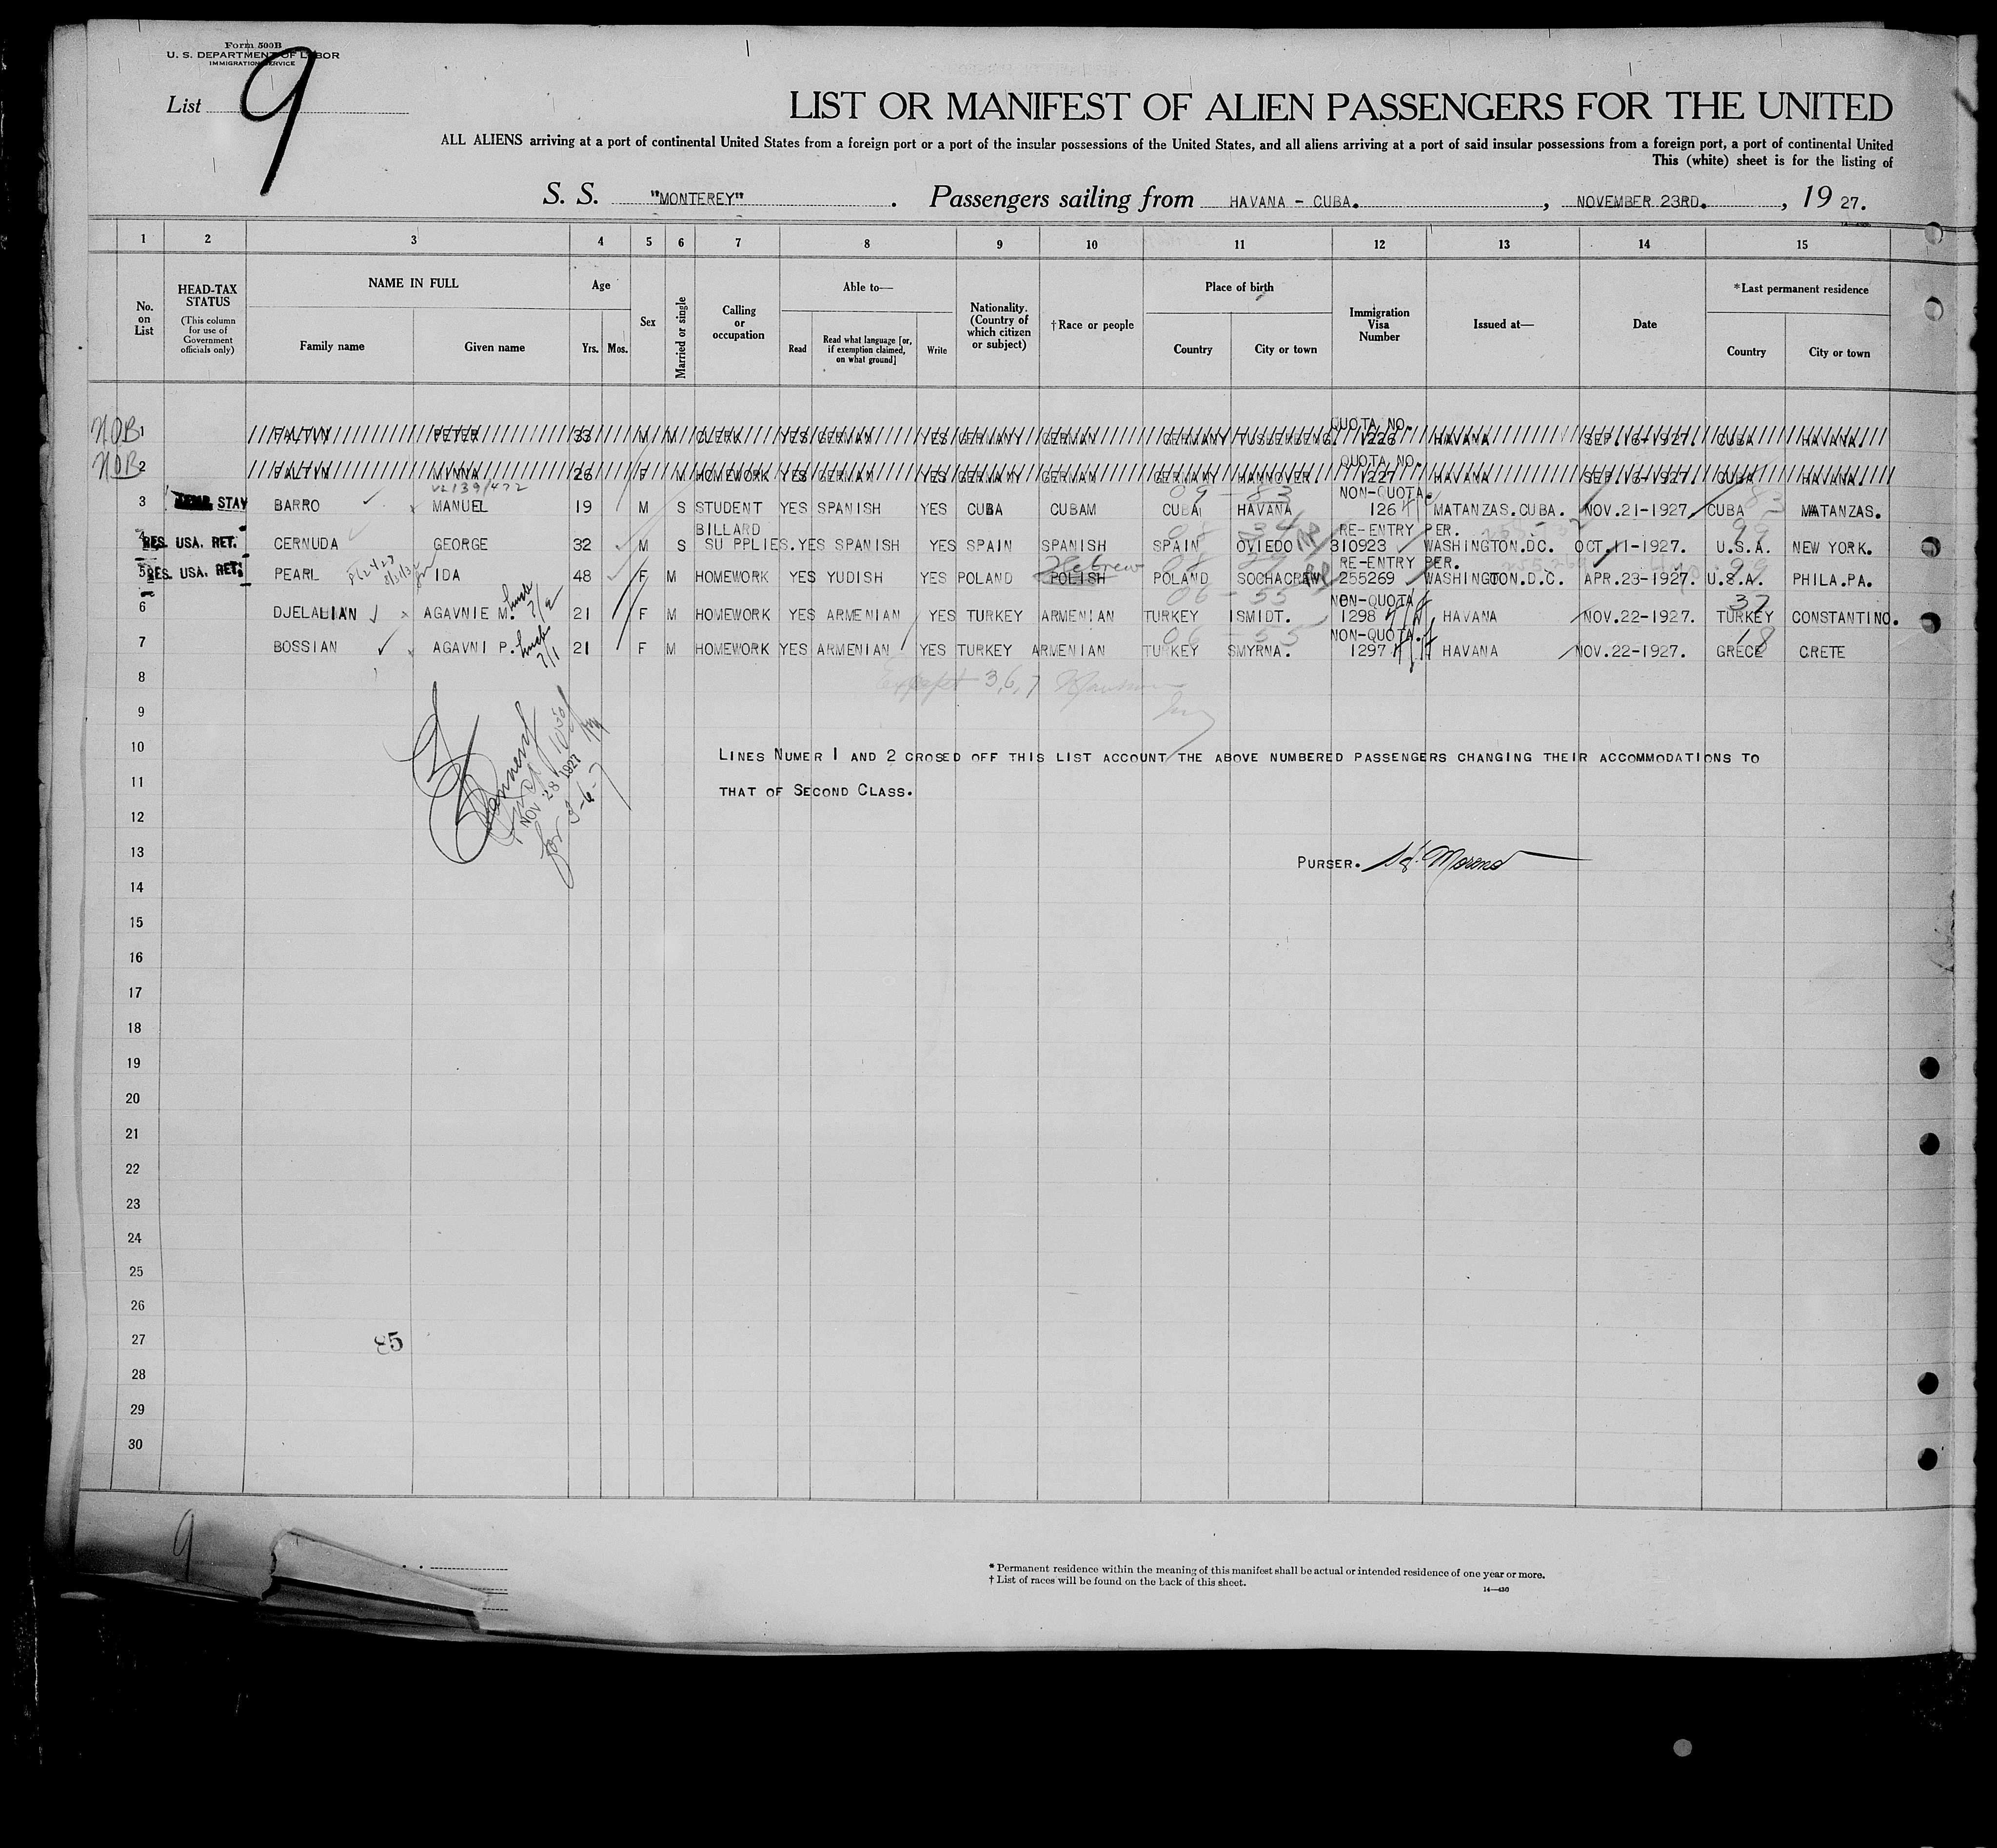 Form 500B
U. S. DEPARTMENT OF LABOR
IMMIGRATION SERVICE
List 9
LIST OR MANIFEST OF ALIEN PASSENGERS FOR THE UNITED
ALL ALIENS arriving at a port of continental United States from a foreign port or a port of the insular possessions of the United States, and all aliens arriving at a port of said insular possessions from a foreign port, a port of continental United
This (white) sheet is for the listing of
S. S. "MONTEREY". Passengers sailing from HAVANA - CUBA., NOVEMBER 23RD., 19 27.
1 2 3 4 5 6 7 8 9 10 11 12 13 14 15
No. on List
HEAD-TAX STATUS (This column for use of Government officials only)
NAME IN FULL Family name Given name
Age Yrs. Mos.
Sex
Married or single
Calling or occupation
Able to— Read Read what language [or, if exemption claimed, on what ground] Write
Nationality. (Country of which citizen or subject)
†Race or people
Place of birth Country City or town
Immigration Visa Number
Issued at—
Date
*Last permanent residence Country City or town
QUOTA NO.
NOB 1 FALTIN PETER 33 M M CLERK YES GERMAN YES GERMANY GERMAN GERMANY 1226 HAVANA SEP.16-1927. CUBA HAVANA.
QUOTA NO.
NOB 2 FALTIN MINNA 26 F M HOMEWORK YES GERMAN YES GERMANY GERMAN GERMANY HANNOVER. 1227 HAVANA SEP.16-1927. CUBA HAVANA.
09 - 83 NON-QUOTA.
3 STAY BARRO MANUEL 19 M S STUDENT YES SPANISH YES CUBA CUBAM CUBA HAVANA 126 MATANZAS.CUBA. NOV.21-1927. CUBA MATANZAS.
BILLARD RE-ENTRY PER. 99
4 RES. USA. RET. CERNUDA GEORGE 32 M S SU PPLIES. YES SPANISH YES SPAIN SPANISH SPAIN OVIEDO 310923 WASHINGTON.DC. OCT.11-1927. U.S.A. NEW YORK.
Hebrew RE-ENTRY PER. 99
5 RES. USA. RET. PEARL IDA 48 F M HOMEWORK YES YUDISH YES POLAND POLISH POLAND SOCHACREW 255269 WASHINGTON.D.C. APR.23-1927. U.S.A. PHILA.PA.
06 - 55 NON-QUOTA 37
6 DJELADIAN AGAVNIE M. 21 F M HOMEWORK YES ARMENIAN YES TURKEY ARMENIAN TURKEY ISMIDT. 1298 HAVANA NOV.22-1927. TURKEY CONSTANTINO.
06 - 55 NON-QUOTA. 18
7 BOSSIAN AGAVNI P. 21 F M HOMEWORK YES ARMENIAN YES TURKEY ARMENIAN TURKEY SMYRNA. 1297 HAVANA NOV.22-1927. GRECE CRETE
8 3,6,7
9
10 LINES NUMER 1 AND 2 CROSED OFF THIS LIST ACCOUNT THE ABOVE NUMBERED PASSENGERS CHANGING THEIR ACCOMMODATIONS TO
11 THAT OF SECOND CLASS.
NOV 28 1927
for 3-6-7
12
13 PURSER.
14
15
16
17
18
19
20
21
22
23
24
25
26
27 85
28
29
30
9
* Permanent residence within the meaning of this manifest shall be actual or intended residence of one year or more.
† List of races will be found on the back of this sheet.
14—430